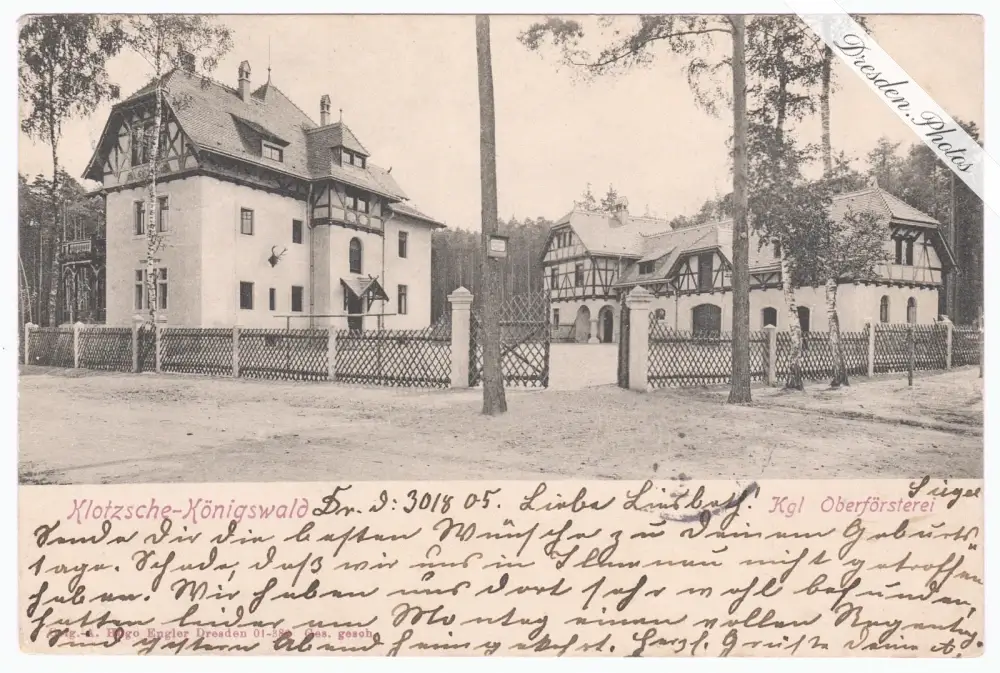 Dresden.Photos
Klotzsche-Königswald Dr. d: 30/8 05. Liebe Liesbeth! Kgl Oberförsterei
Sende Dir die besten Wünsche zu Deinem Geburts
tage. Schade, daß wir uns in Ilmenau nicht getroffen
haben. Wir haben uns dort sehr wohl befunden,
hatten leider am Montag einen vollen Regentag.
Orig.-A. Hugo Engler Dresden 01-38 Ges. gesch.
Sind gestern Abend heimgekehrt. Herzl. Grüße Deine A.